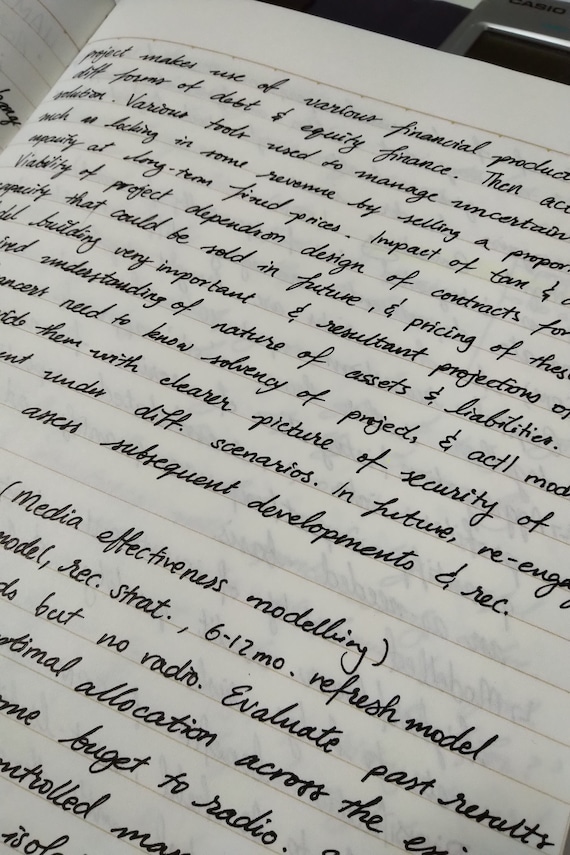 CASIO
project makes use of various financial product
diff forms of debt & equity finance. Then act
solution. Various tools used to manage uncertain
such as locking in some revenue by selling a propor
capacity at long-term fixed prices. Impact of tax &
Viability of project depends on design of contracts for
capacity that could be sold in future, & pricing of thes
building very important & resultant projections of
understanding of nature of assets & liabilities.
need to know solvency of project, & act'l mod
them with clearer picture of security of
under diff. scenarios. In future, re-enga
assess subsequent developments & rec.
(Media effectiveness modelling)
model, rec. strat., 6-12 mo. refresh model
but no radio. Evaluate past results
allocation across the
buget to radio.